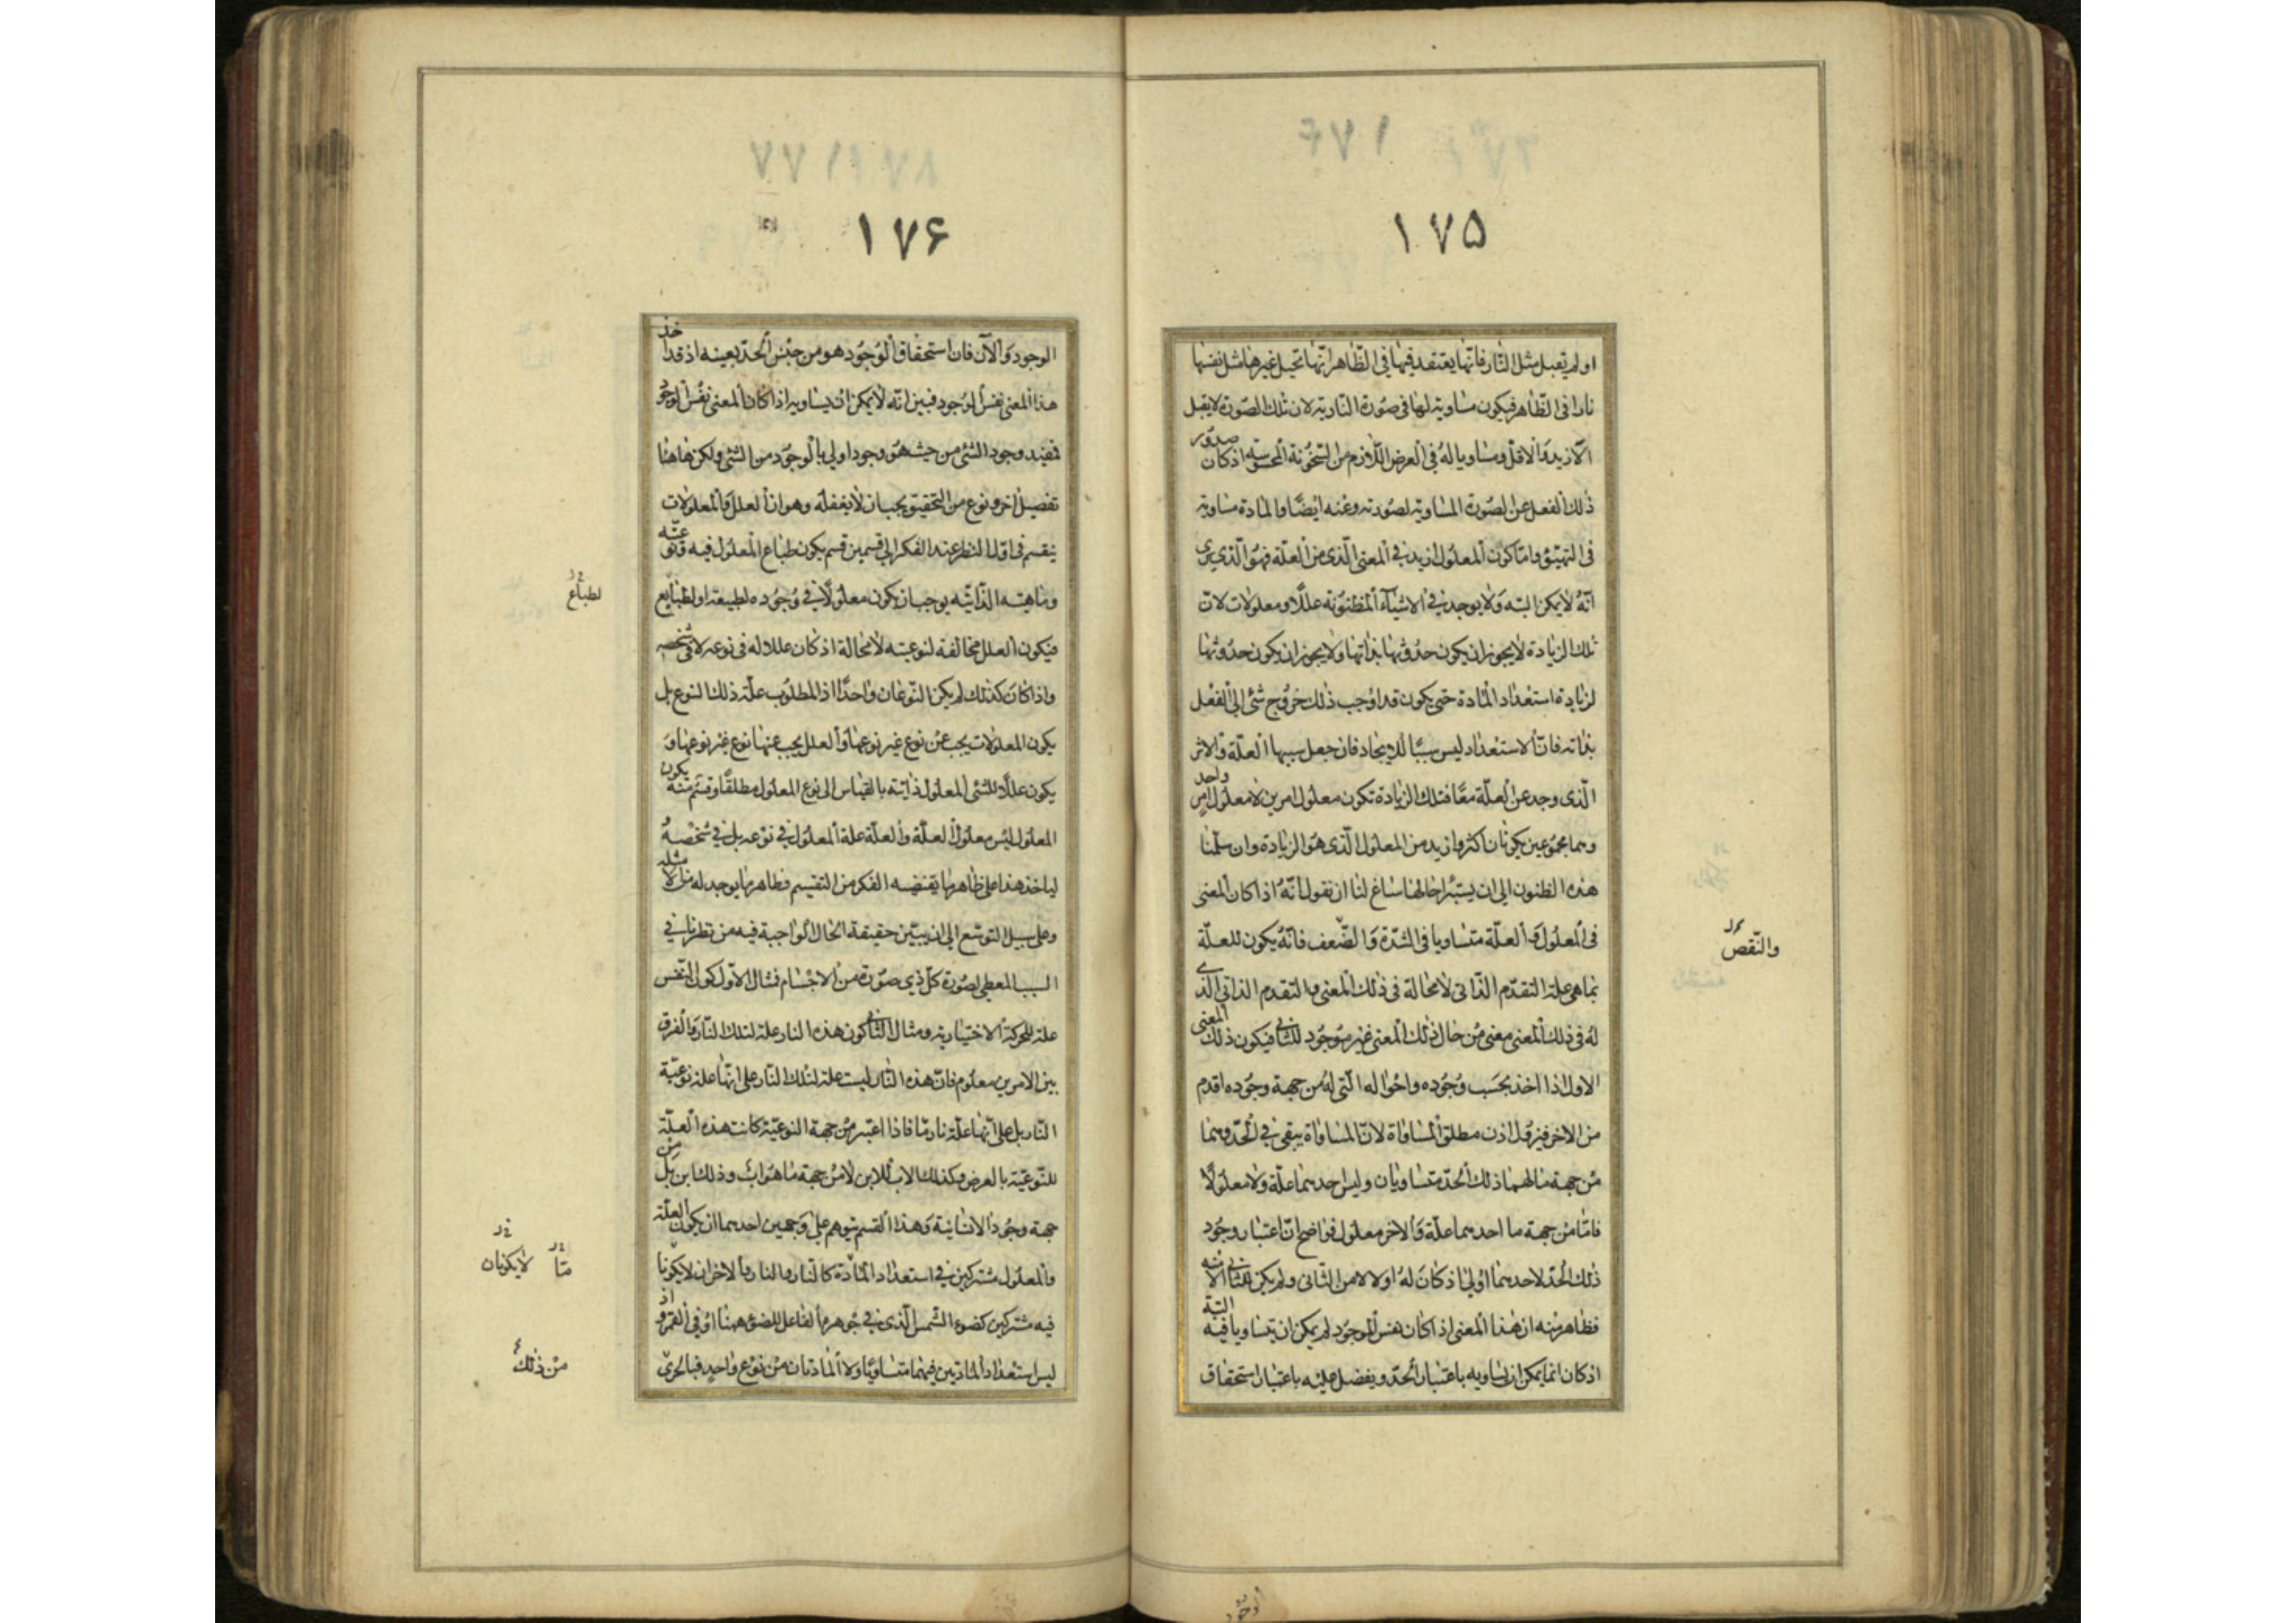 ١٧٥
او لم تقبل مثل النار فانها يعتقد فيها في الظاهر انها تحيل غيرها مثل نفسها
نارا في الظاهر فيكون مساوية لها في صورة النارية لان تلك الصورة لا يقبل
الازيد والاقل ومساويا له في العرض اللازم من السخونة المحسوسة اذ كان صدور
ذلك الفعل عن الصورة المساوية لصورته وعنه ايضا والمادة مساوية
في التهيؤ واما كون المعلول ازيد في المعنى الذي من العلة فهو الذي يرى
انه لا يمكن البتة ولا يوجد في الاشياء المظنونة عللا ومعلولات لان
تلك الزيادة لا يجوز ان يكون حدوثها بذاتها ولا يجوز ان يكون حدوثها
لزيادة استعداد المادة حتى يكون قد اوجب ذلك خروج شئ الى الفعل
بذاته فان الاستعداد ليس سببا للايجاد فان جعل سببها العلة والاثر
الذي وجد عن العلة معا فتلك الزيادة تكون معلول امرين لا معلول امر واحد
وهما مجموعين يكونان اكثر وازيد من المعلول الذي هو الزيادة وان سلمنا
هذه الظنون الى ان يستبرا حالها ساغ لنا ان نقول انه اذا كان المعنى
في المعلول والعلة متساويا في الشدة والضعف فانه يكون للعلة
والنقص
بما هي علة التقدم الذاتي لا محالة في ذلك المعنى والتقدم الذاتي الذي
له في ذلك المعنى معنى من حال ذلك المعنى غير موجود للثاني فيكون ذلك المعنى
الاول اذا اخذ بحسب وجوده واحواله التي له من جهة وجوده اقدم
من الاخر فيزول اذن مطلق المساواة لان المساواة يبقى في الحد وهما
من جهة ما لهما ذلك الحد متساويان وليس احدهما علة ولا معلولا
فاما من جهة ما احدهما علة والاخر معلول فواضح ان اعتبار وجود
ذلك الحد لاحدهما اولى اذ كان له اولا لا من الثاني ولم يكن للثاني الا منه
فظاهر منه ان هذا المعنى اذا كان نفس الوجود لم يمكن ان يتساويا فيه البتة
اذ كان انما يمكن ان يساويه باعتبار الحد ويفضل عليه باعتبار استحقاق
١٧۶
الوجود والآن فان استحقاق الوجود هو من جنس الحد بعينه اذ قد اخذ
هذا المعنى نفس الوجود فبين انه لا يمكن ان يساويه اذا كان المعنى نفس الوجود
فمفيد وجود الشئ من حيث هو وجود اولى بالوجود من الشئ ولكن هاهنا
تفصيل اخر ونوع من التحقيق يجب ان لا يغفله وهو ان العلل والمعلولات
ينقسم في اول النظر عند الفكر الى قسمين قسم يكون طباع المعلول فيه ونوعيته
وماهيته الذاتية يوجب ان يكون معلولا في وجوده لطبيعة او لطبايع
لطباع
فيكون العلل مخالفة لنوعيته لا محالة اذ كان عللا له في نوعه لا في شخصه
واذا كان كذلك لم يكن النوعان واحدا اذ المطلوب علة ذلك النوع بل
يكون المعلولات يجب عن نوع غير نوعها والعلل يجب عنها نوع غير نوعها و
يكون عللا للشئ المعلول ذاتية بالقياس الى نوع المعلول مطلقا وقسم منه يكون
المعلول ليس معلول العلة والعلة علة المعلول في نوعه بل في شخصه و
لياخذ هذا على ظاهر ما يقتضيه الفكر من التقسيم وظاهر ما يوجد له من الامثلة
وعلى سبيل التوسع الى ان يبين حقيقة الحال الواجبة فيه من نظرنا في
السبب المعطي لصورة كل ذي صورة من الاجسام فمثال الاول كون النفس
علة للحركة الاختيارية ومثال الثاني كون هذه النار علة لتلك النار والفرق
بين الامرين معلوم فان هذه النار ليست علة لتلك النار على انها علة نوعية
النار بل على انها علة نار ما فاذا اعتبر من جهة النوعية كانت هذه العلة
للنوعية بالعرض وكذلك الاب للابن لا من جهة ما هو اب وذلك ابن بل من
جهة وجود الانسانية وهذا القسم يتوهم على وجهين احدهما ان يكون العلة
والمعلول مشتركين في استعداد المادة كالنار والنار والاخر ان لا يكونا
متا لا يكونان
فيه مشتركين كضوء الشمس الذي في جوهره الفاعل للضوء هاهنا او في القمر واذ
ليس استعداد المادتين فيهما متساويا ولا المادتان من نوع واحد فبالحري
من ذلك